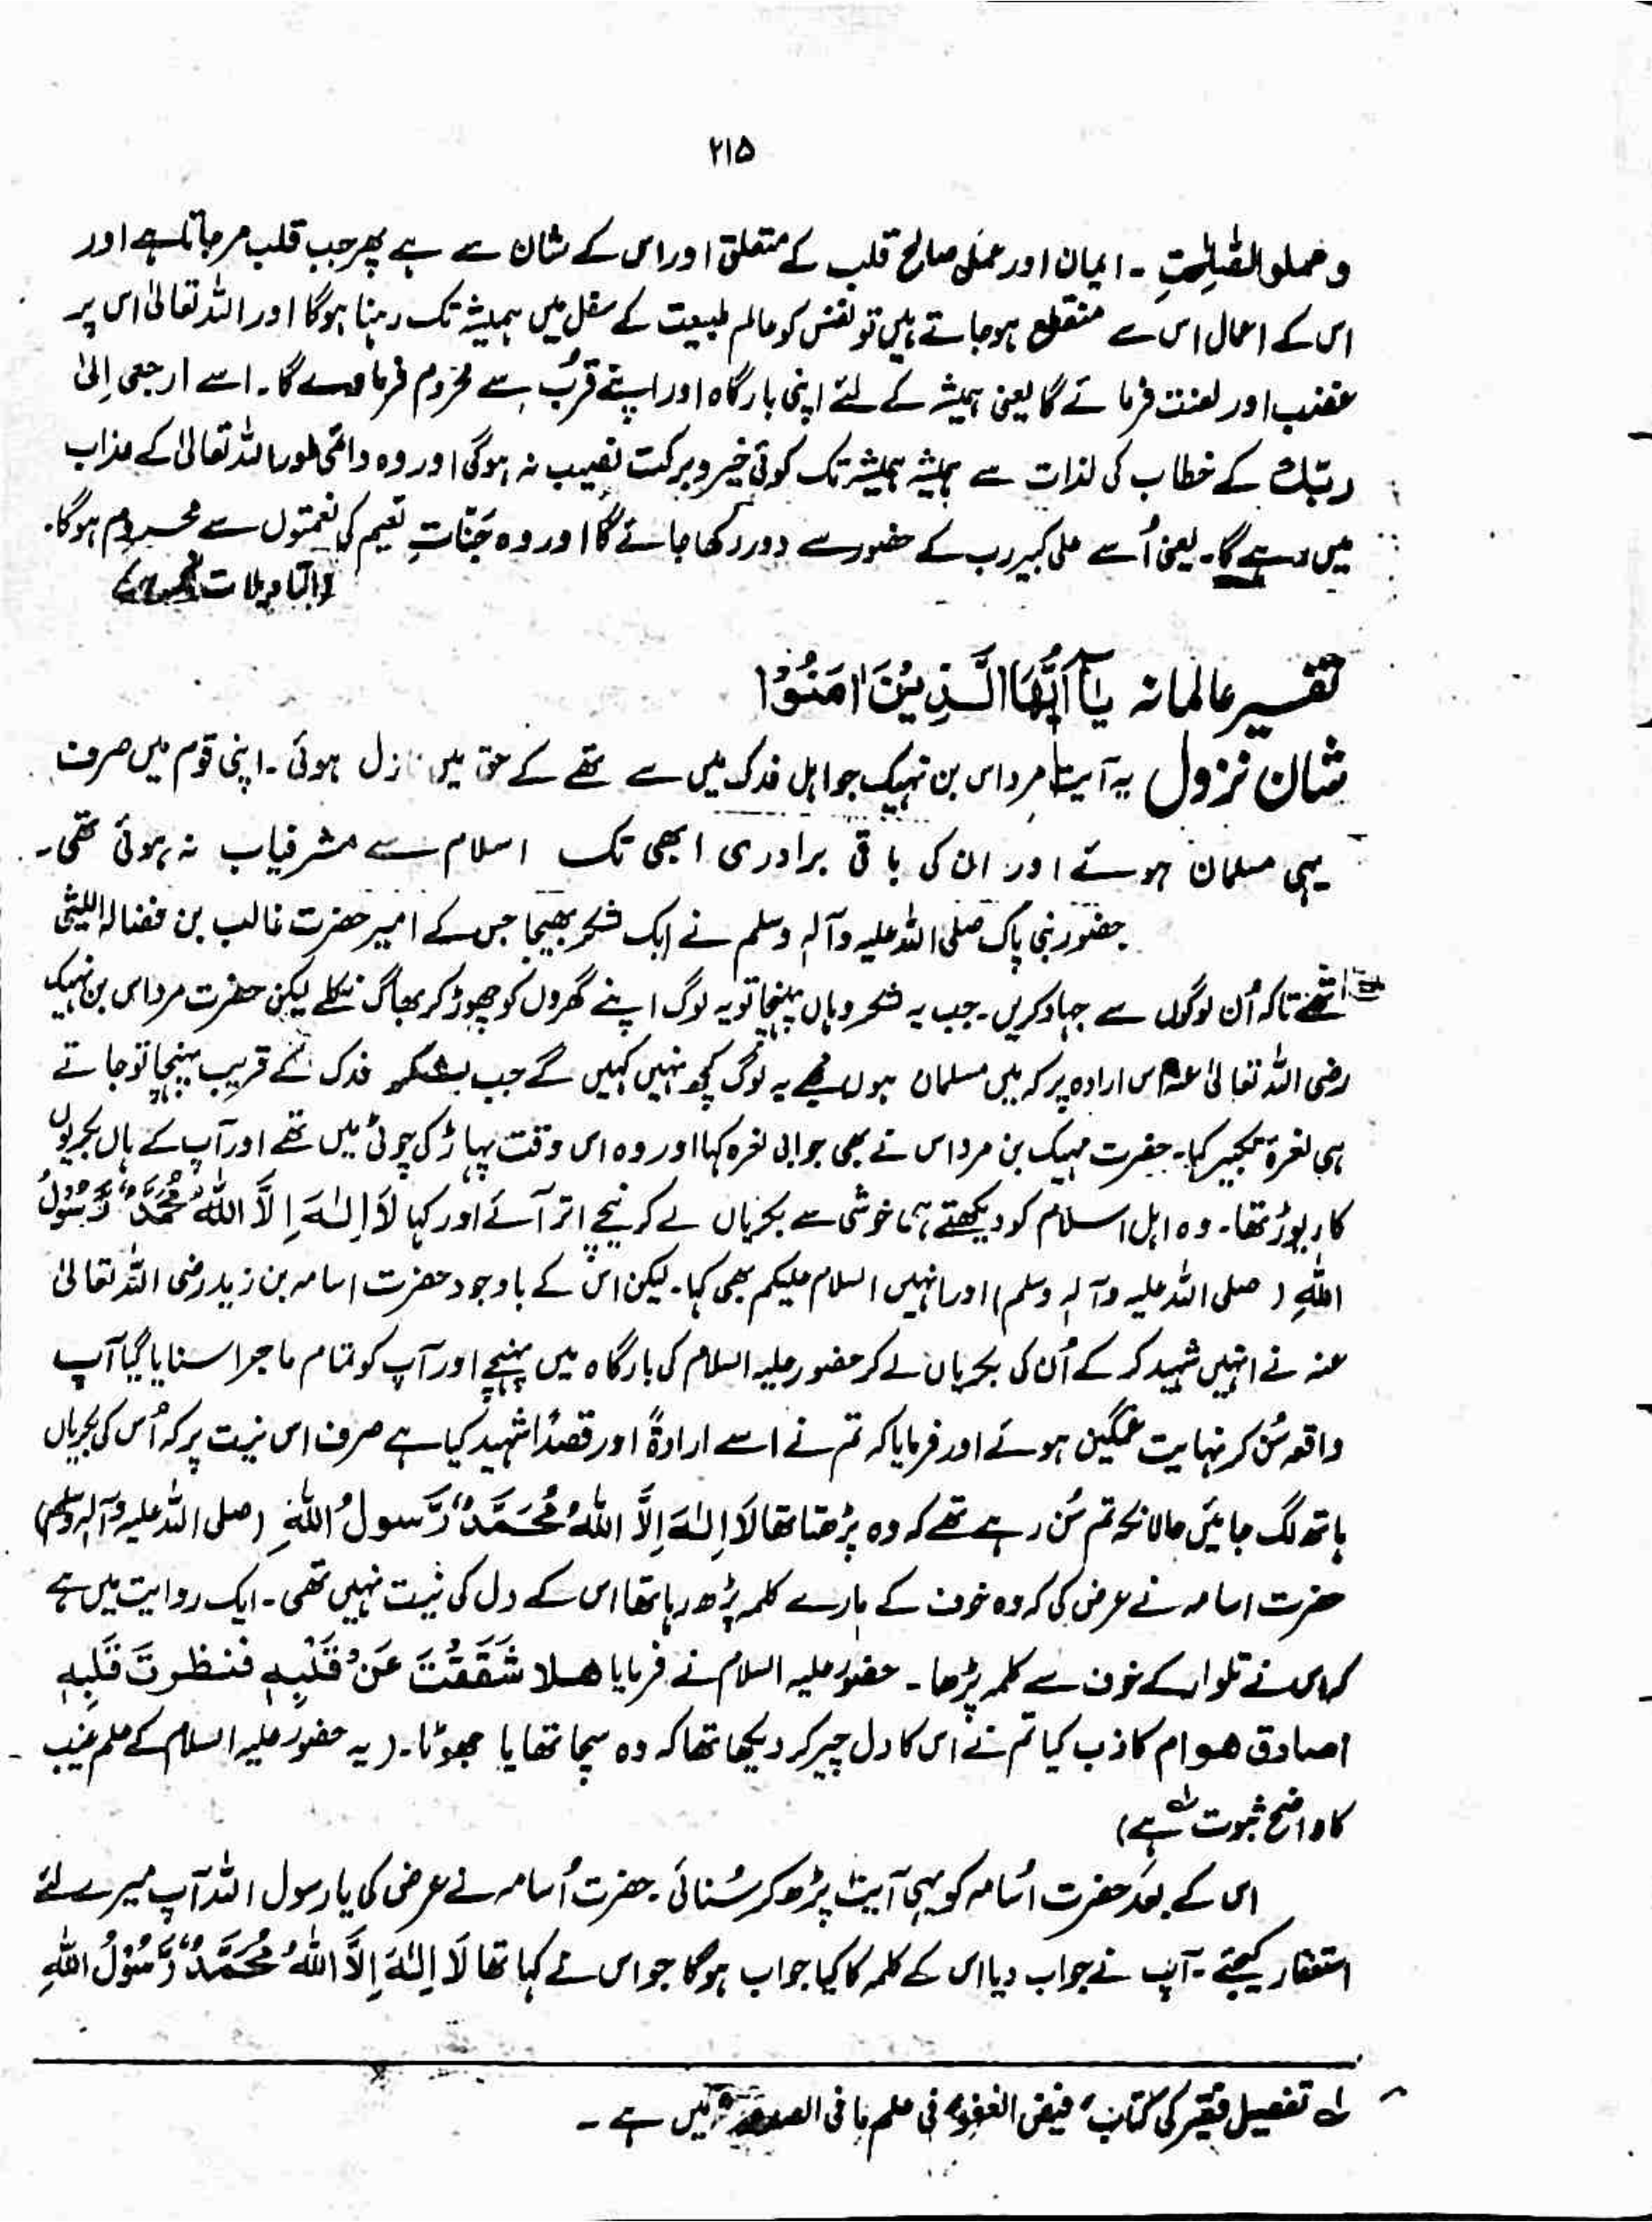 ۲۱۵
وعملو الصّٰلِحٰتِ ۔ ایمان اور عمل صالح قلب کے متعلق اور اس کے شان سے ہے پھر جب قلب مر جاتا ہے اور
اس کے اعمال اس سے منقطع ہو جاتے ہیں تو نفس کو عالم طبیعت کے سفل میں ہمیشہ تک رہنا ہوگا اور اللہ تعالیٰ اس پر
غضب اور لعنت فرمائے گا یعنی ہمیشہ کے لئے اپنی بارگاہ اور اپنے قرُب سے محروم فرماوے گا۔ اسے ارجعی اِلیٰ
ربّک کے خطاب کی لذات سے ہمیشہ ہمیشہ تک کوئی خیر و برکت نصیب نہ ہوگی اور وہ دائمی طور اللہ تعالیٰ کے عذاب
میں رہے گا۔ یعنی اُسے علی کبیر رب کے حضور سے دور رکھا جائے گا اور وہ جَنّاتِ نعیم کی نعمتوں سے محروم ہوگا۔
(التاویلات
تفسیر عالمانہ یٰۤاَیُّهَا الَّذِیْنَ اٰمَنُوْا
شان نزول یہ آیت مرداس بن نہیک جو اہل فدک میں سے تھے کے حق میں نازل ہوئی ۔ اپنی قوم میں صرف
یہی مسلمان ہوئے اور ان کی باقی برادری ابھی تک اسلام سے مشرفیاب نہ ہوئی تھی ۔
حضور نبی پاک صلی اللہ علیہ وآلہٖ وسلم نے ایک لشکر بھیجا جس کے امیر حضرت غالب بن فضالہ اللیثی
تھے تاکہ اُن لوگوں سے جہاد کریں ۔ جب یہ لشکر وہاں پہنچا تو یہ لوگ اپنے گھروں کو چھوڑ کر بھاگ نکلے لیکن حضرت مرداس بن نہیک
رضی اللہ تعالیٰ عنہ اس ارادہ پر کہ میں مسلمان ہوں مجھے یہ لوگ کچھ نہیں کہیں گے جب لشکر فدک کے قریب پہنچا تو جاتے
ہی نعرۂ تکبیر کہا ۔ حضرت نہیک بن مرداس نے بھی جوابی نعرہ کہا اور وہ اس وقت پہاڑ کی چوٹی میں تھے اور آپ کے ہاں بکریوں
کا ریوڑ تھا ۔ وہ اہل اسلام کو دیکھتے ہی خوشی سے بکریاں لے کر نیچے اتر آئے اور کہا لَاۤ اِلٰہَ اِلَّا اللّٰہُ مُحَمَّدٌ رَّسُوْلُ
اللّٰہِ ( صلی اللہ علیہ وآلہٖ وسلم) اور انہیں السلام علیکم بھی کہا ۔ لیکن اس کے باوجود حضرت اسامہ بن زید رضی اللہ تعالیٰ
عنہ نے انہیں شہید کر کے اُن کی بکریاں لے کر حضور علیہ السلام کی بارگاہ میں پہنچے اور آپ کو تمام ماجرا سنایا گیا آپ
واقعہ سُن کر نہایت غمگین ہوئے اور فرمایا کہ تم نے اسے ارادۃً اور قصدًا شہید کیا ہے صرف اس نیت پر کہ اُس کی بکریاں
ہاتھ لگ جائیں حالانکہ تم سُن رہے تھے کہ وہ پڑھتا تھا لَاۤ اِلٰہَ اِلَّا اللّٰہُ مُحَمَّدٌ رَّسولُ اللّٰہِ (صلی اللہ علیہ وآلہٖ وسلم)
حضرت اسامہ نے عرض کی کہ وہ خوف کے مارے کلمہ پڑھ رہا تھا اس کے دل کی نیت نہیں تھی ۔ ایک روایت میں ہے
کہ اس نے تلوار کے خوف سے کلمہ پڑھا ۔ حضور علیہ السلام نے فرمایا ھلا شَقَقْتَ عَنْ قَلْبِہٖ فنظرتَ قَلْبِہٖ
اصادق ھو ام کاذب کیا تم نے اس کا دل چیر کر دیکھا تھا کہ وہ سچا تھا یا جھوٹا ۔ (یہ حضور علیہ السلام کے علم غیب
کا واضح ثبوت ہے لہ)
اس کے بعد حضرت اُسامہ کو یہی آیت پڑھ کر سُنائی ۔ حضرت اُسامہ نے عرض کی یا رسول اللہ آپ میرے لئے
استغفار کیجئے ۔ آپ نے جواب دیا اس کے کلمہ کا کیا جواب ہوگا جو اس نے کہا تھا لَاۤ اِلٰہَ اِلَّا اللّٰہُ مُحَمَّدٌ رَّسُوْلُ اللّٰہِ
لہ تفصیل فقیر کی کتاب "فیض الغفور فی علم ما فی الصدور" میں ہے ۔